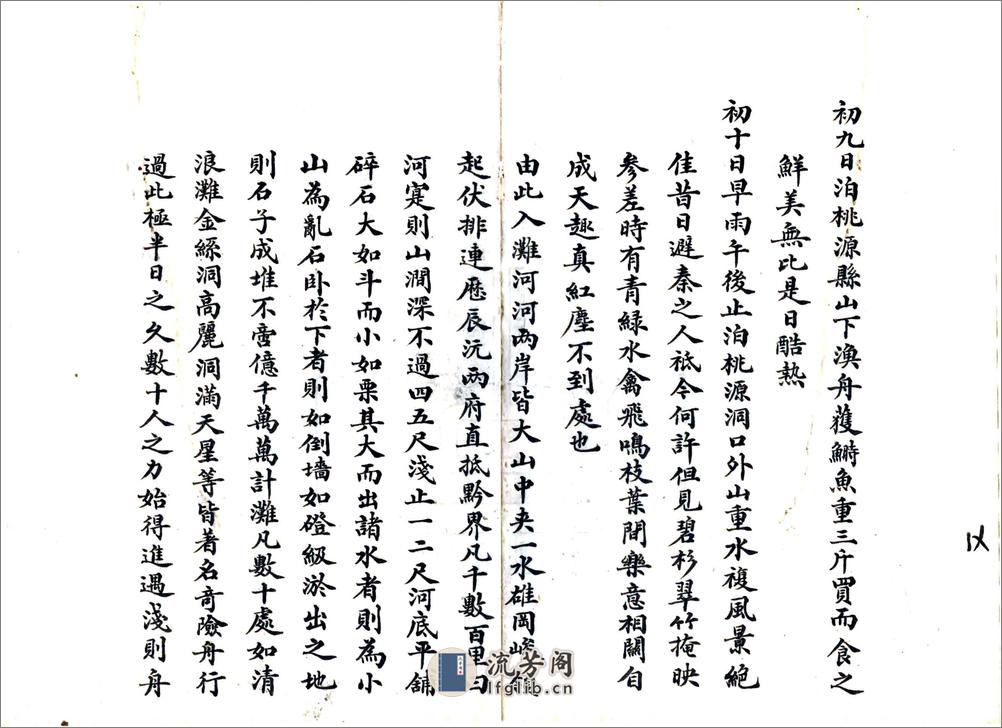 初九日泊桃源縣山下漁舟獲鰣魚重三斤買而食之
鮮美無比是日酷熱
初十日早雨午後止泊桃源洞口外山重水複風景絕
佳昔日避秦之人祗今何許但見碧杉翠竹掩映
參差時有青綠水禽飛鳴枝葉間樂意相關自
成天趣真紅塵不到處也
由此入灘河河兩岸皆大山中夾一水雄岡峻
起伏排連歷辰沅兩府直抵黔界凡千數百里曰
河寔則山澗深不過四五尺淺止一二尺河底平鋪
碎石大如斗而小如栗其大而出諸水者則為小
山為亂石卧於下者則如倒墻如磴級淤出之地
則石子成堆不啻億千萬萬計灘凡數十處如清
浪灘金絲洞高麗洞滿天星等皆著名奇險舟行
過此極半日之久數十人之力始得進遇淺則舟
流芳阁
lfglib.cn